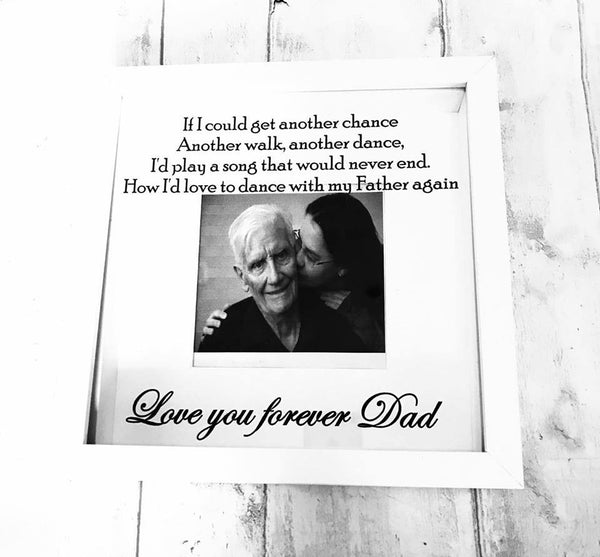 If I could get another chance
Another walk, another dance,
I'd play a song that would never end.
How I'd love to dance with my Father again
Love you forever Dad